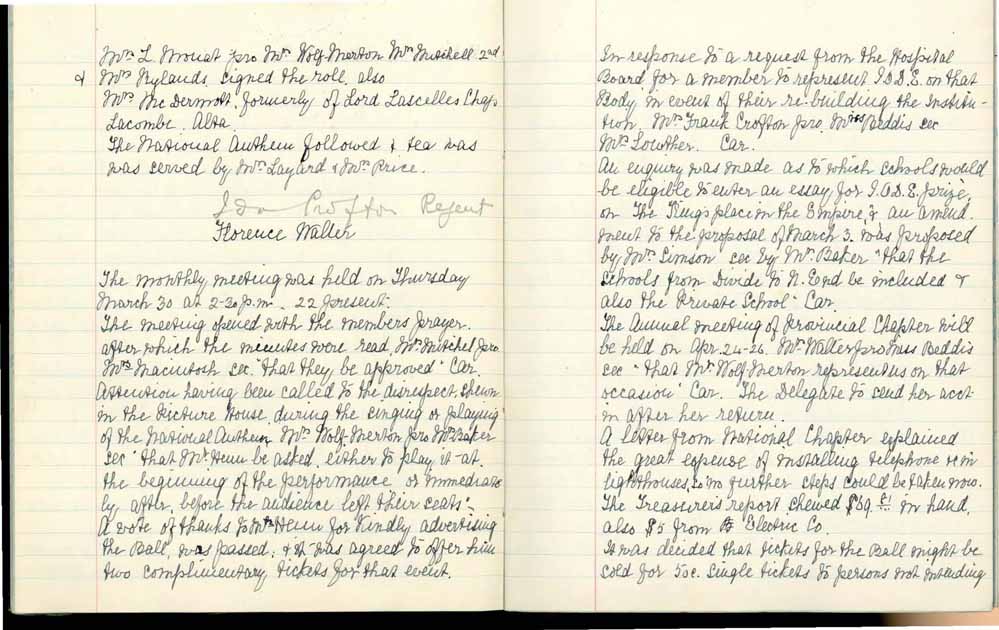 Mrs L. Mouat pro Mrs Wolf-Merton Mrs Mitchell 2nd
& Mrs Rylands signed the roll, also
Mrs McDermott, formerly of Lord Lascelles Chap.
Lacombe, Alta.
The National Anthem followed & tea was
was served by Mrs Layard & Mrs Price.
Ida Crofton Regent
Florence Walter
The monthly meeting was held on Thursday
March 30 at 2-30 p.m. 22 present.
The meeting opened with the members prayer.
after which the minutes were read, Mrs Mitchel pro.
Mrs Macintosh sec. "that they be approved" Car.
Attention having been called to the disrespect shewn
in the Picture House, during the singing or playing
of the National Anthem Mrs Wolf-Merton pro Mrs Baker
sec "that Mr Henn be asked, either to play it at
the beginning of the performance or immediate
ly after, before the audience left their seats".
A vote of thanks to Mr Henn for kindly advertising
the Ball, was passed; & it was agreed to offer him
two complimentary tickets for that event.
In response to a request from the Hospital
Board, for a member to represent I.O.D.E. on that
Body, in event of their re-building the Institu-
tion, Mrs Frank Crofton pro. Miss Beddis sec
Mrs Lowther. Car.
An enquiry was made as to which schools would
be eligible to enter an essay for I.O.D.E. prize,
on The King's place in the Empire, & an amend-
ment to the proposal of March 3. was proposed
by Mrs Simson sec by Mrs Baker "that the
Schools from Divide to N. End be included &
also the Private School" Car.
The Annual meeting of Provincial Chapter will
be held on Apr. 24-26. Mrs Walter pro Miss Beddis
sec "that Mrs Wolf-Merton represent us on that
occasion" Car. The Delegate to send her acct
in after her return.
A letter from National Chapter explained
the great expense of installing telephone &c in
lighthouses, so no further steps could be taken now.
The Treasurer's report shewed in hand,
also $5 from Electric Co.
It was decided that tickets for the Ball might be
sold for 50c. single tickets to persons not intending